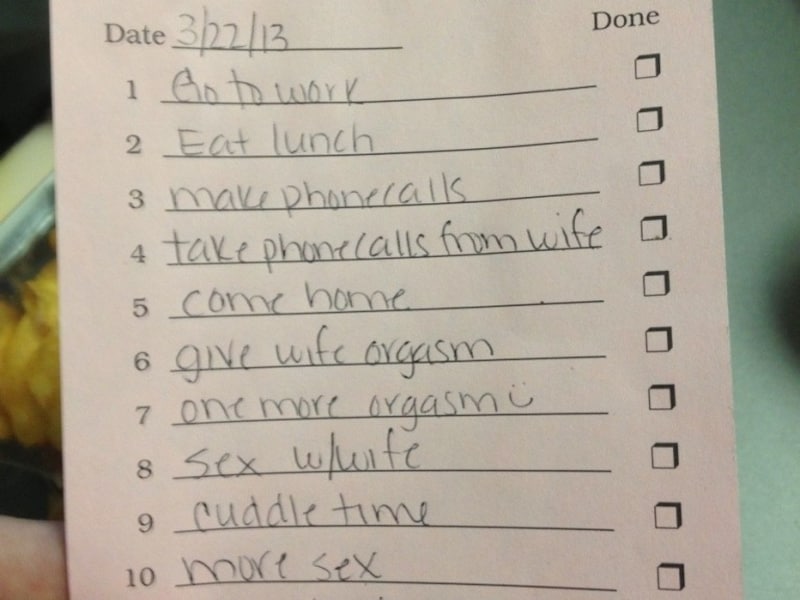 Date 3/22/13 Done
1 Go to work
2 Eat lunch
3 make phone calls
4 take phone calls from wife
5 come home
6 give wife orgasm
7 one more orgasm
8 sex w/wife
9 cuddle time
10 more sex